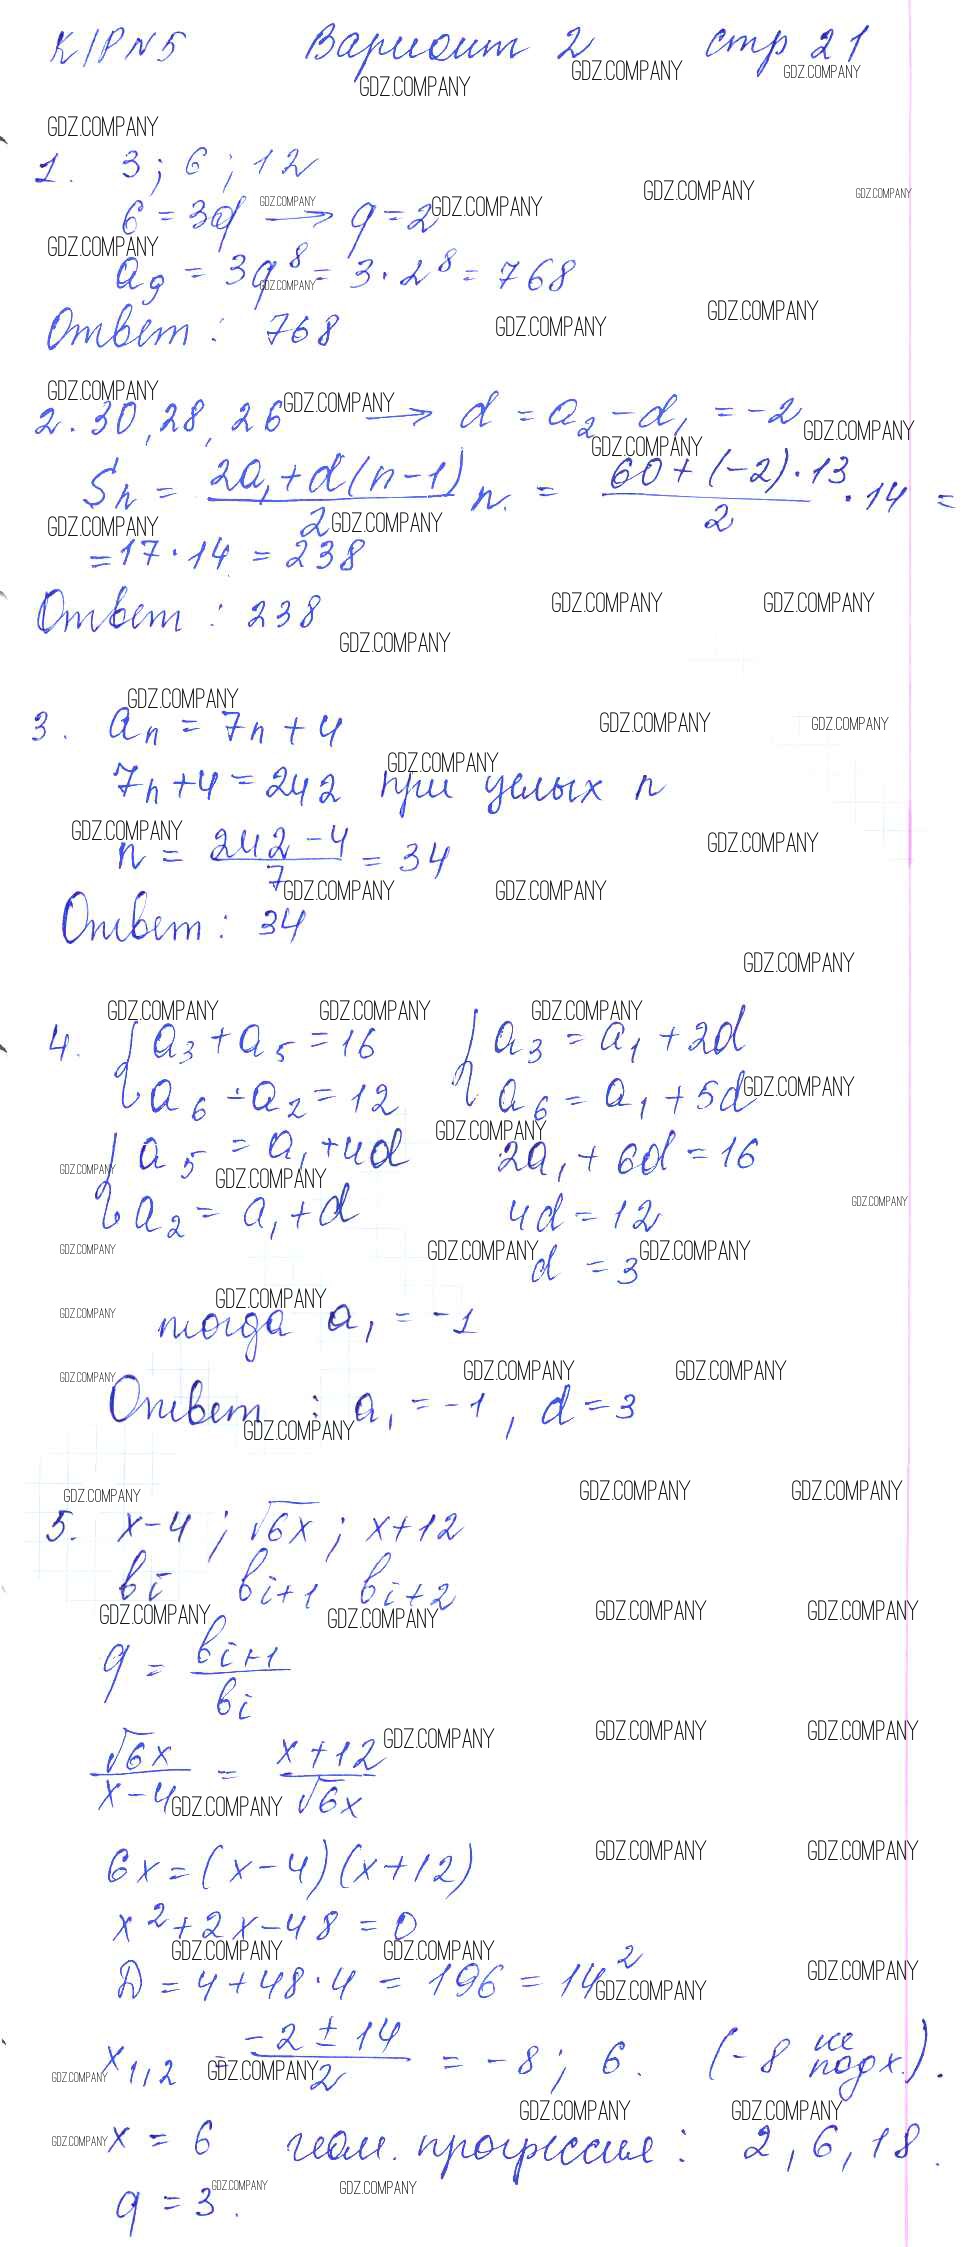 К/Р N 5 Вариант 2 стр 21
1. 3; 6; 12
6 = 3q → q = 2
a₉ = 3q⁸ = 3·2⁸ = 768
Ответ: 768
2. 30, 28, 26 → d = a₂ - d₁ = -2
Sₙ = (2a₁ + d(n-1))/2 n = (60 + (-2)·13)/2 · 14 =
= 17·14 = 238
Ответ: 238
3. aₙ = 7n + 4
7n + 4 = 242 при целых n
n = (242 - 4)/7 = 34
Ответ: 34
4. { a₃ + a₅ = 16 { a₃ = a₁ + 2d
a₆ - a₂ = 12 a₆ = a₁ + 5d
{ a₅ = a₁ + 4d 2a₁ + 6d = 16
a₂ = a₁ + d 4d = 12
d = 3
тогда a₁ = -1
Ответ: a₁ = -1, d = 3
5. x-4; √6x; x+12
bᵢ bᵢ₊₁ bᵢ₊₂
q = bᵢ₊₁/bᵢ
√6x/(x-4) = (x+12)/√6x
6x = (x-4)(x+12)
x² + 2x - 48 = 0
D = 4 + 48·4 = 196 = 14²
x₁,₂ = (-2 ± 14)/2 = -8; 6. (-8 не подх.).
x = 6 геом. прогрессия: 2, 6, 18.
q = 3.
GDZ.COMPANY